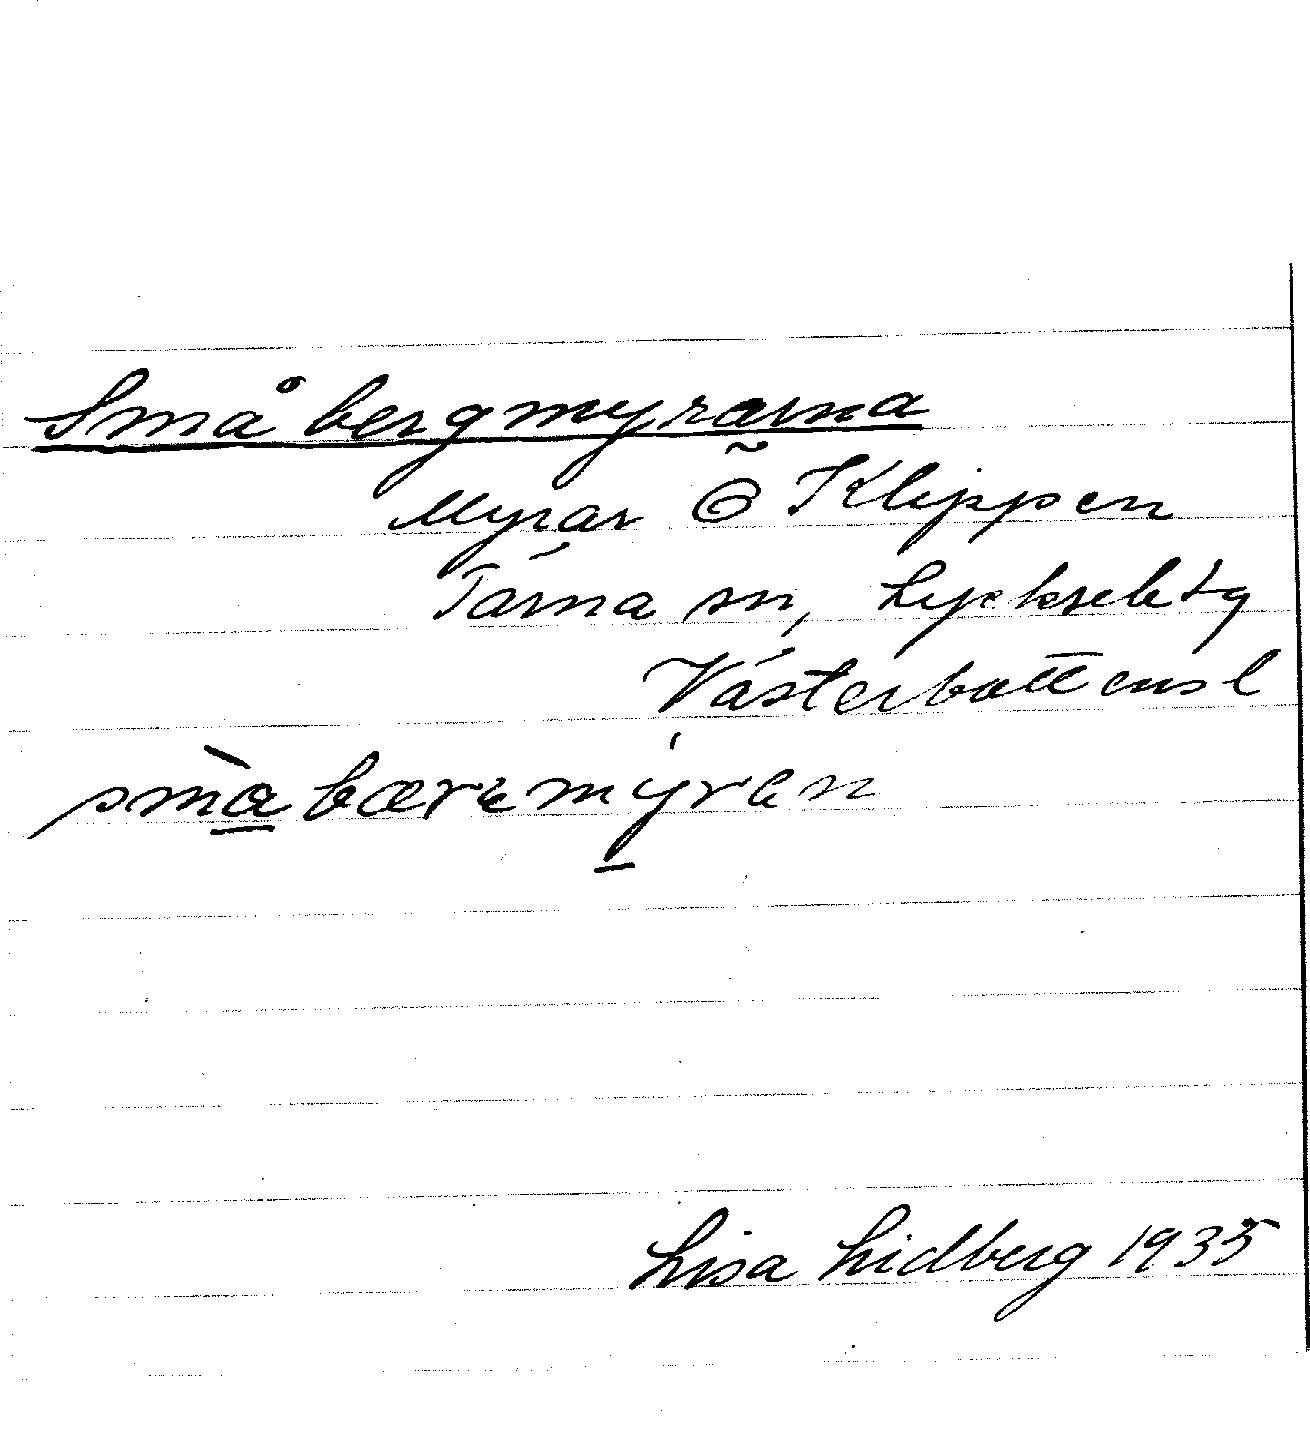 Småbergmyrarna
Myrar Ö Klippen
Tärna sn, Lycksele tg
Västerbottens l
små̀bæremýran
Lisa Lidberg 1935